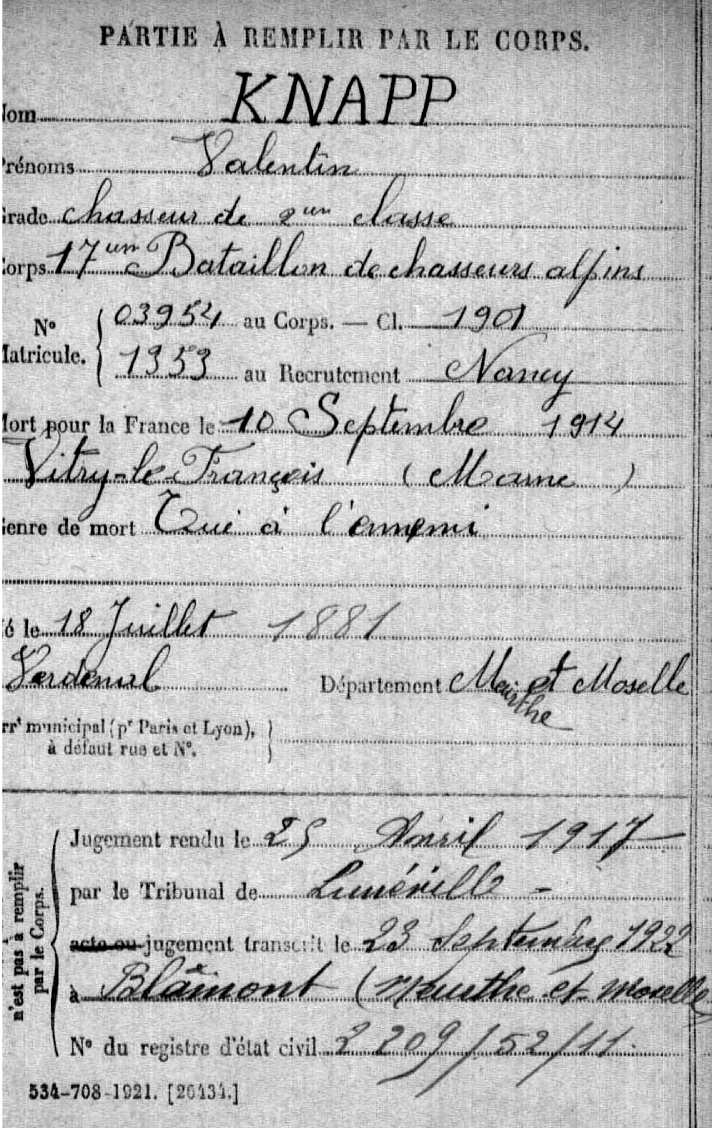 PARTIE À REMPLIR PAR LE CORPS.
Nom KNAPP
Prénoms Valentin
Grade chasseur de 2em classe
Corps 17em Bataillon de chasseurs alpins
N° Matricule. { 03954 au Corps. — Cl. 1901
1353 au Recrutement Nancy
Mort pour la France le 10 Septembre 1914
Vitry-le-François (Marne)
Genre de mort Tué à l'ennemi
Né le 18 Juillet 1881
Verdenal Département Meurthe et Moselle
Arrt municipal (pr Paris et Lyon), à défaut rue et N°. }
n'est pas à remplir par le Corps.
Jugement rendu le 25 Avril 1917
par le Tribunal de Lunéville -
acte ou jugement transcrit le 23 Septembre 1922
à Blâmont (Meurthe-et-Moselle
N° du registre d'état civil 2209/52/11.
534-708-1921. [26434.]